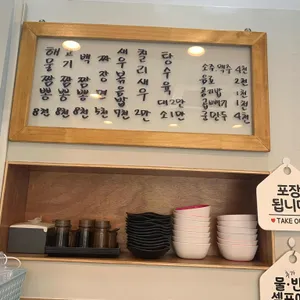 해물짬뽕 8천
고기짬뽕 8천
백짬뽕 8천
짜장면 5천
새우볶음밥 7천
칠리새우 2만
탕수육 대 2만 소 1만
소주 맥주 4천
음료 2천
공기밥 1천
곱빼기 1천
군만두 4천
포장
됩니다
TAKE OU
물·반
셀프